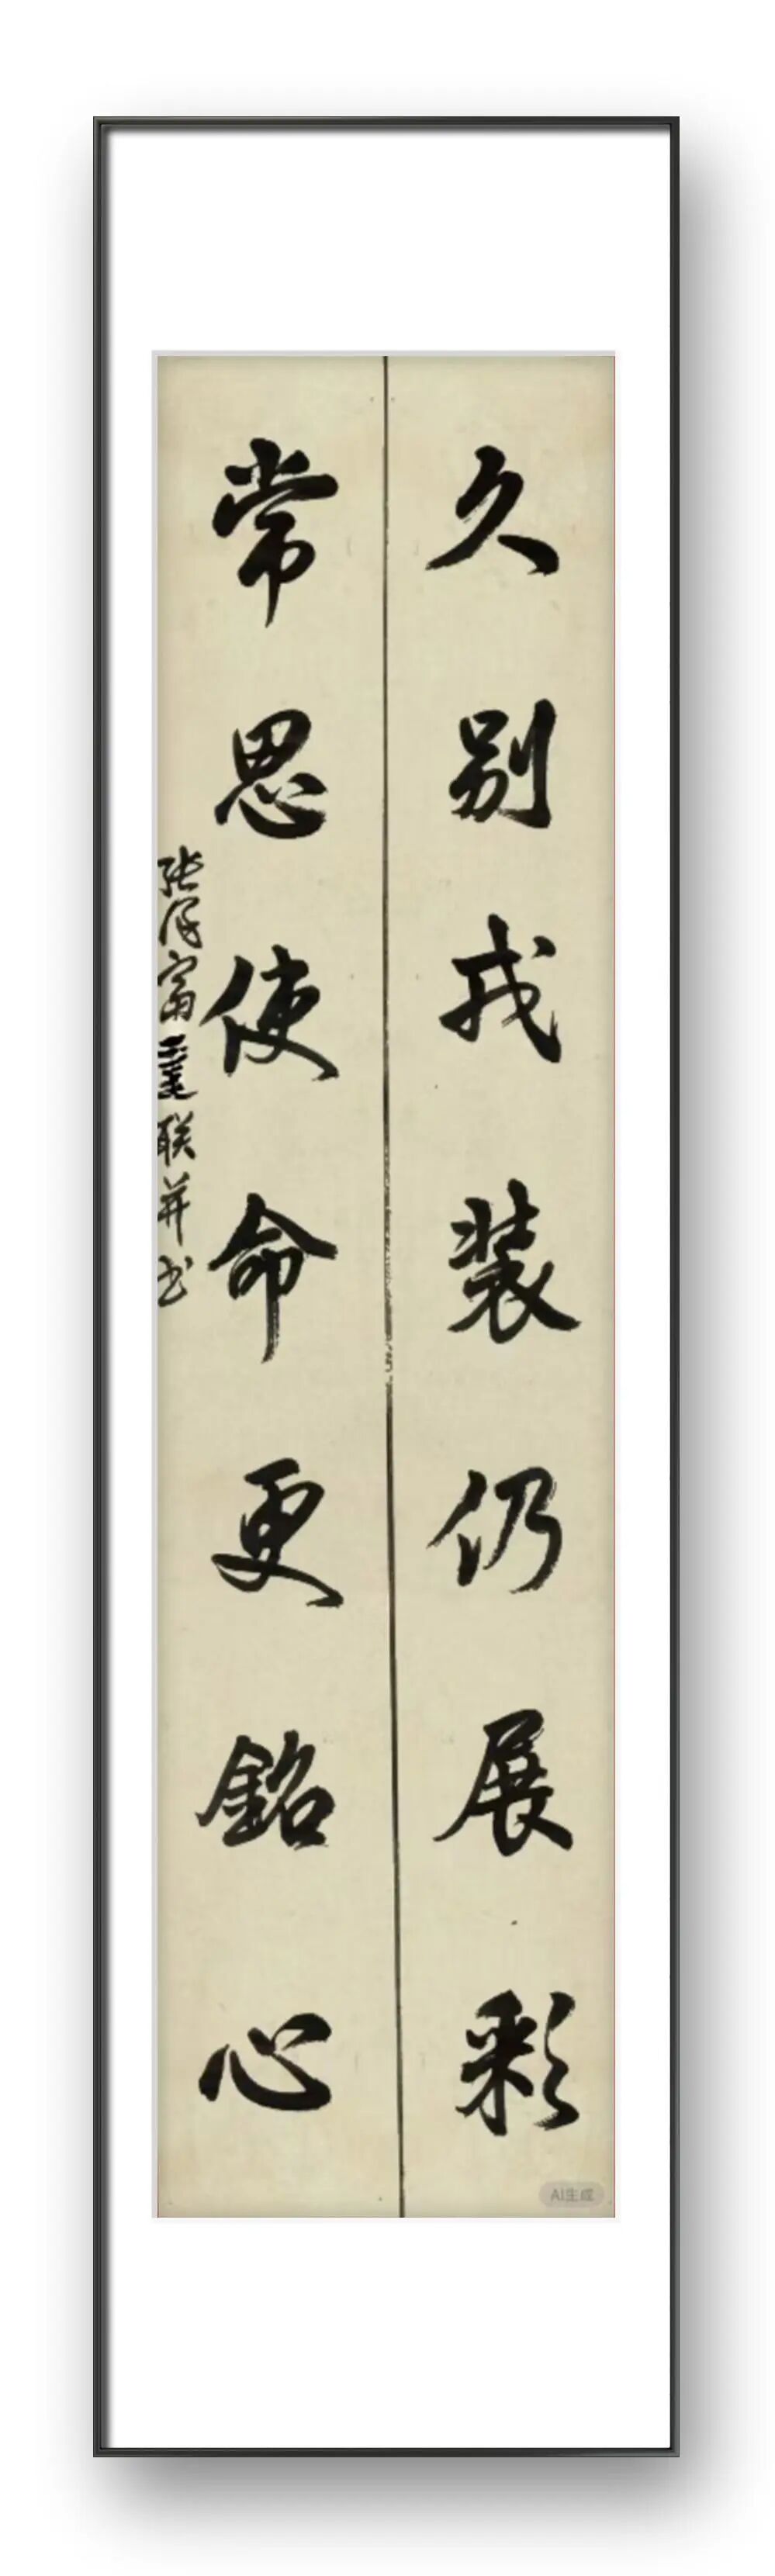 久别戎装仍展彩
常思使命更銘心
张保富撰联并书
AI生成